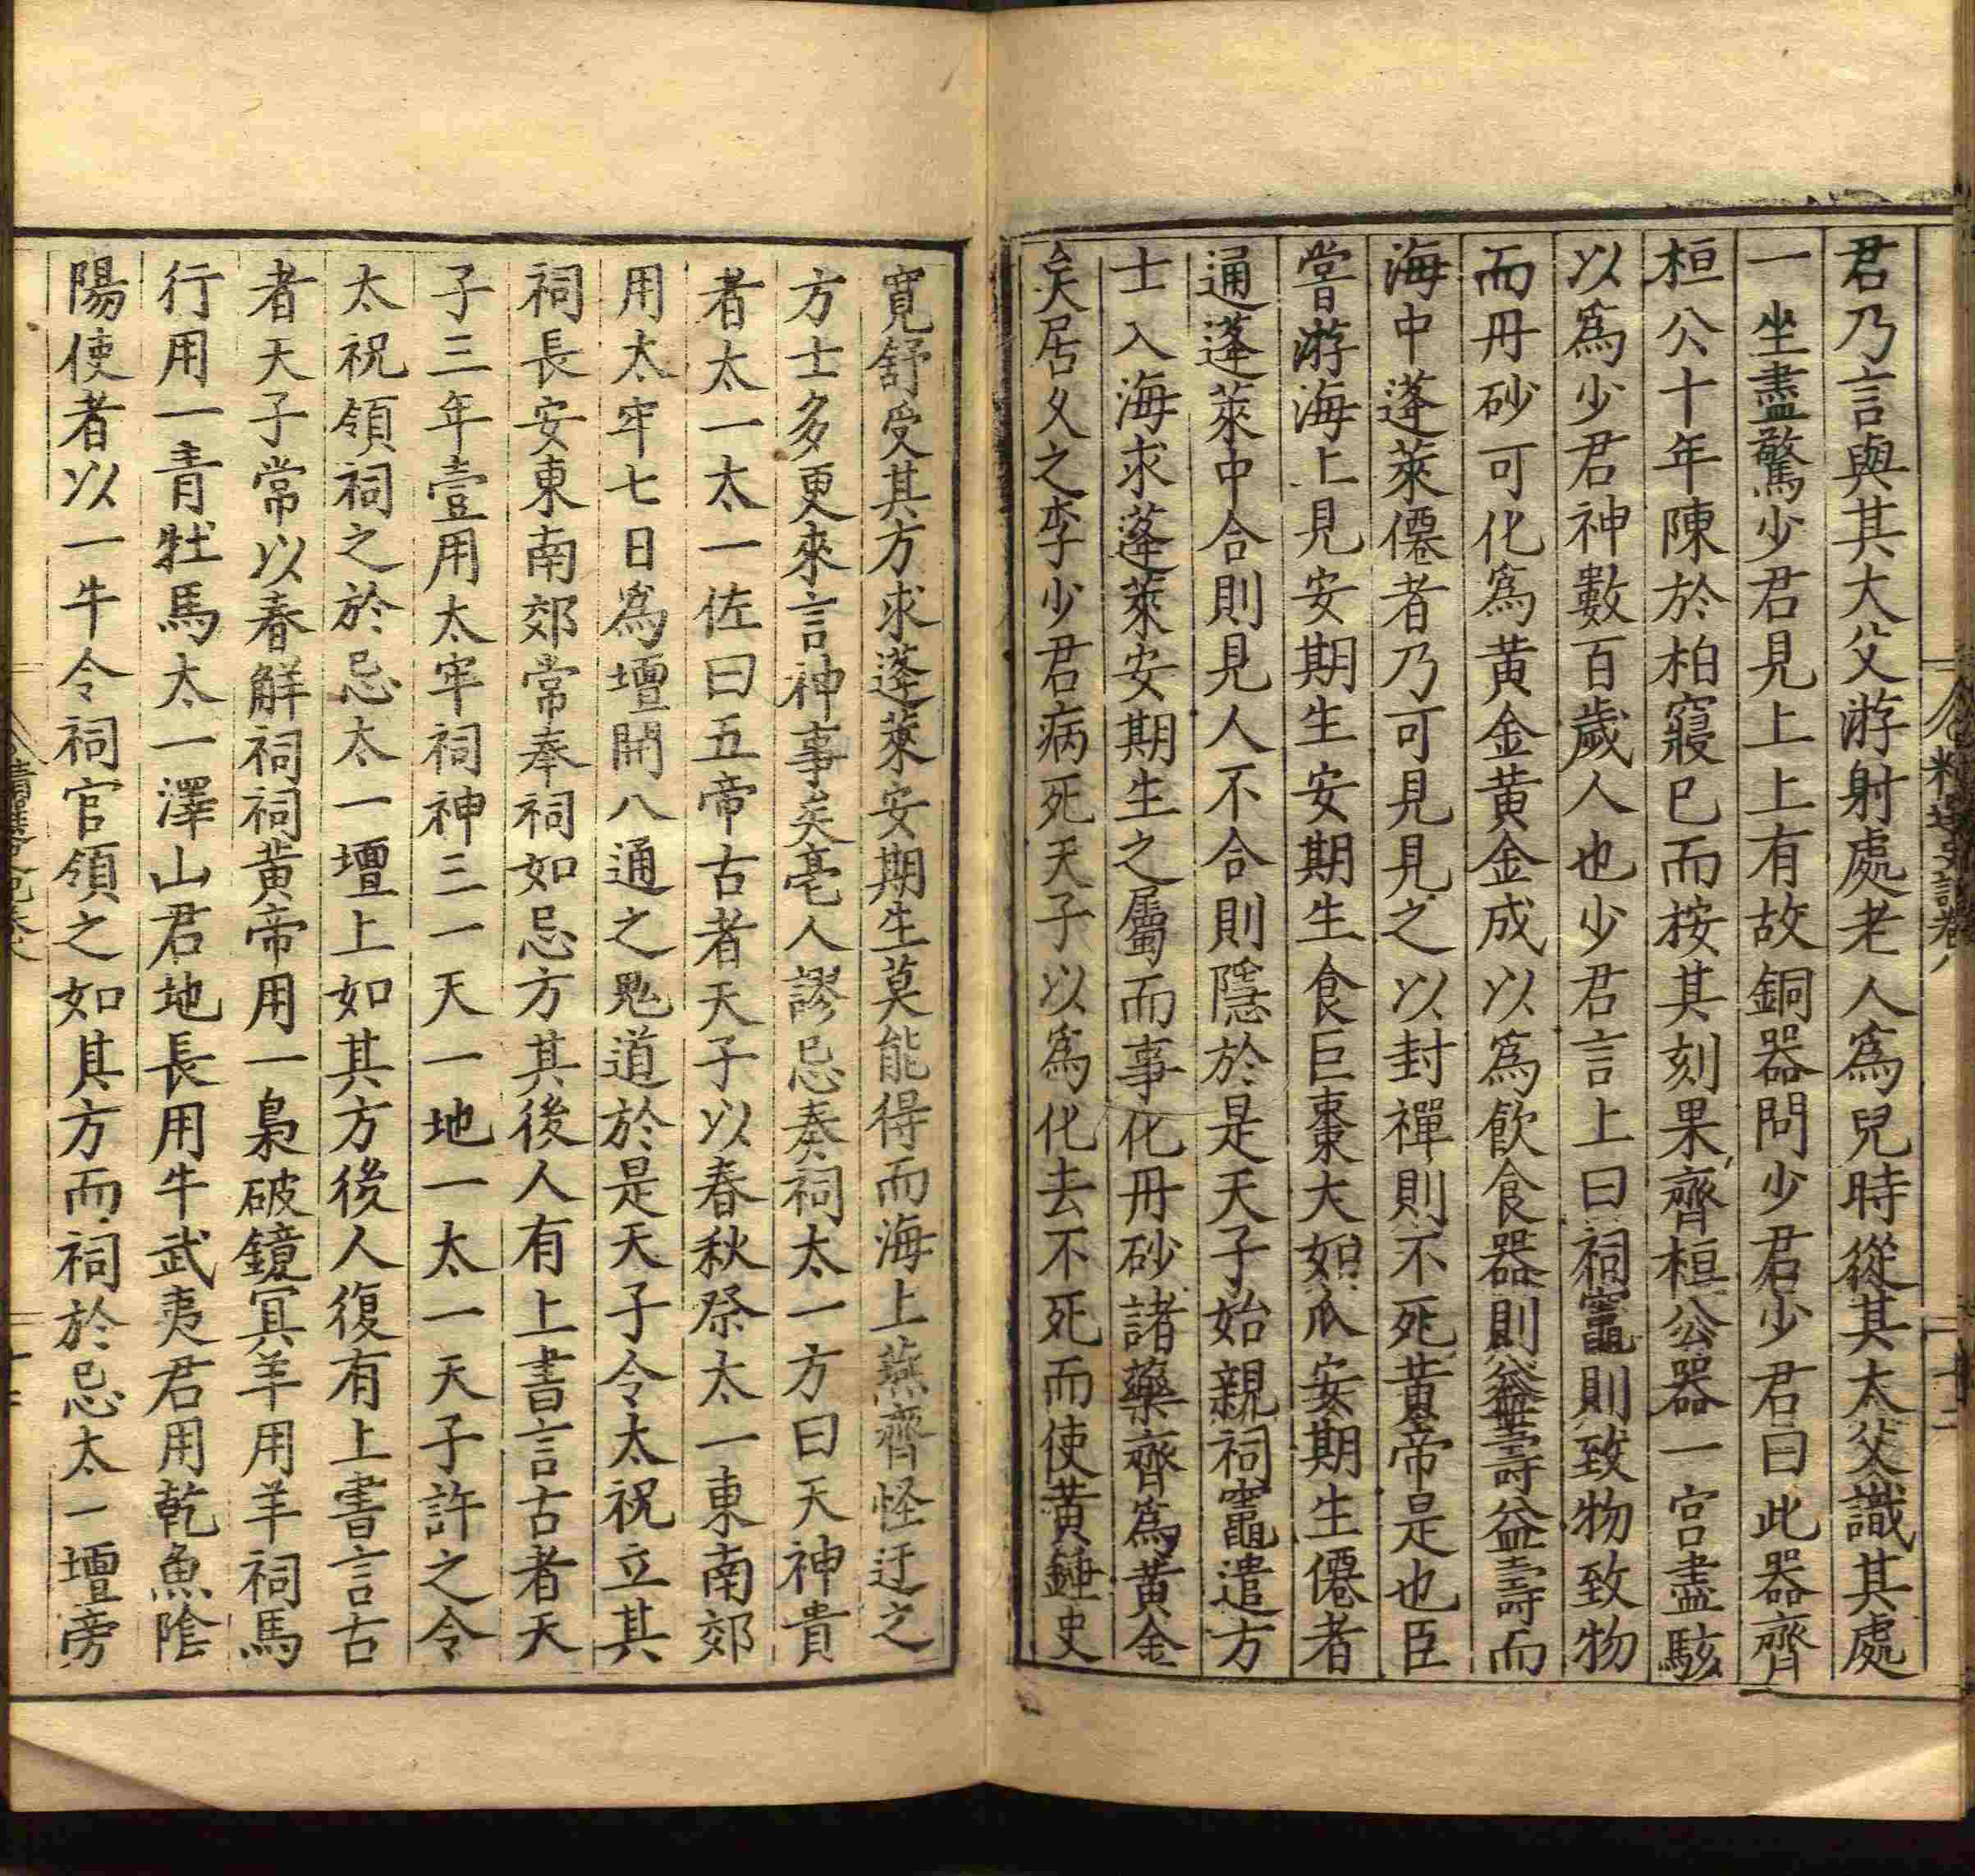 君乃言與其大父游射處老人爲兒時從其太父識其處
一坐盡驚少君見上上有故銅器問少君少君曰此器齊
桓公十年陳於柏寢已而按其刻果齊桓公器一宫盡駭
以爲少君神數百歲人也少君言上曰祠竈則致物致物
而丹砂可化爲黄金黄金成以爲飲食器則益壽益壽而
海中蓬萊僊者乃可見見之以封禪則不死黃帝是也臣
嘗游海上見安期生安期生食巨棗大如瓜安期生僊者
通蓬萊中合則見人不合則隱於是天子始親祠竈遣方
士入海求蓬萊安期生之屬而事化丹砂諸藥齊爲黄金
矣居久之李少君病死天子以爲化去不死而使黄錘史
寬舒受其方求蓬萊安期生莫能得而海上燕齊怪迂之
方士多更來言神事矣亳人謬忌奏祠太一方曰天神貴
者太一太一佐曰五帝古者天子以春秋祭太一東南郊
用太牢七日爲壇開八通之鬼道於是天子令太祝立其
祠長安東南郊常奉祠如忌方其後人有上書言古者天
子三年壹用太牢祠神三一天一地一太一天子許之令
太祝領祠之於忌太一壇上如其方後人復有上書言古
者天子常以春解祠祠黄帝用一梟破鏡冥羊用羊祠馬
行用一青牡馬太一澤山君地長用牛武夷君用乾魚陰
陽使者以一牛令祠官領之如其方而祠於忌太一壇旁